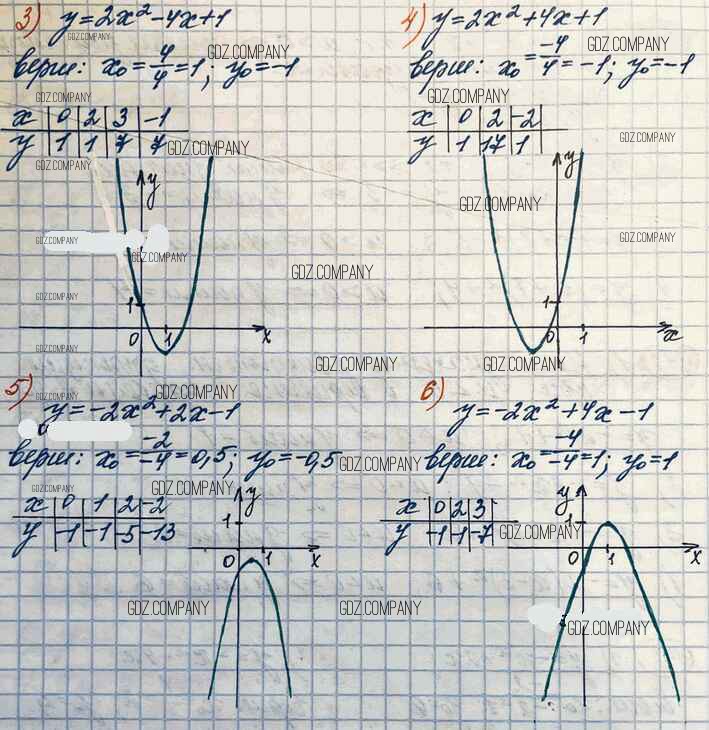 3) y=2x²-4x+1
GDZ.COMPANY
GDZ.COMPANY
верш: x₀=4/4=1; y₀=-1
GDZ.COMPANY
x 0 2 3 -1
y 1 1 7 7
GDZ.COMPANY
GDZ.COMPANY
y
GDZ.COMPANY
GDZ.COMPANY
GDZ.COMPANY
GDZ.COMPANY
1
0 1 x
GDZ.COMPANY
GDZ.COMPANY
4) y=2x²+4x+1
GDZ.COMPANY
верш: x₀=-4/4=-1; y₀=-1
GDZ.COMPANY
x 0 2 -2
y 1 17 1
GDZ.COMPANY
y
GDZ.COMPANY
GDZ.COMPANY
1
0 1 x
GDZ.COMPANY
5)
GDZ.COMPANY
y=-2x²+2x-1
верш: x₀=-2/-4=0,5; y₀=-0,5
GDZ.COMPANY
GDZ.COMPANY
GDZ.COMPANY
x 0 1 2 -2
y -1 -1 -5 -13
y
1
0 1 x
GDZ.COMPANY
GDZ.COMPANY
6)
y=-2x²+4x-1
верш: x₀=-4/-4=1; y₀=1
x 0 2 3
y -1 -1 -7
GDZ.COMPANY
y
1
0 1 x
GDZ.COMPANY